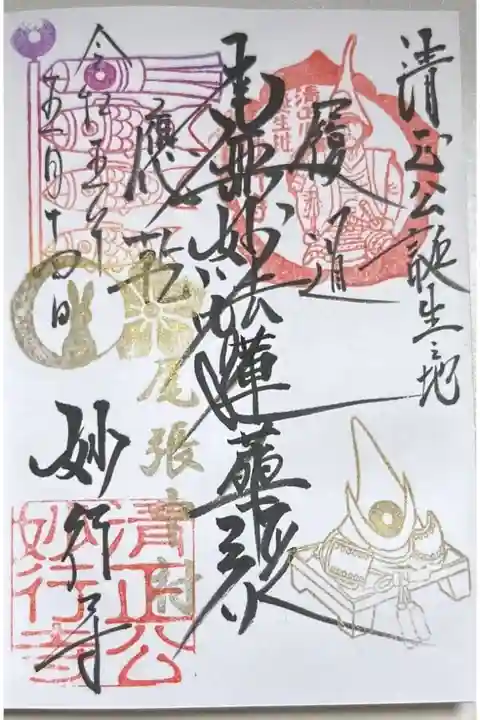 清正公誕生之地
履道
南無妙法蓮華経
應乾
令和五年
五月十四日
尾張
妙行寺
清正公
妙行寺